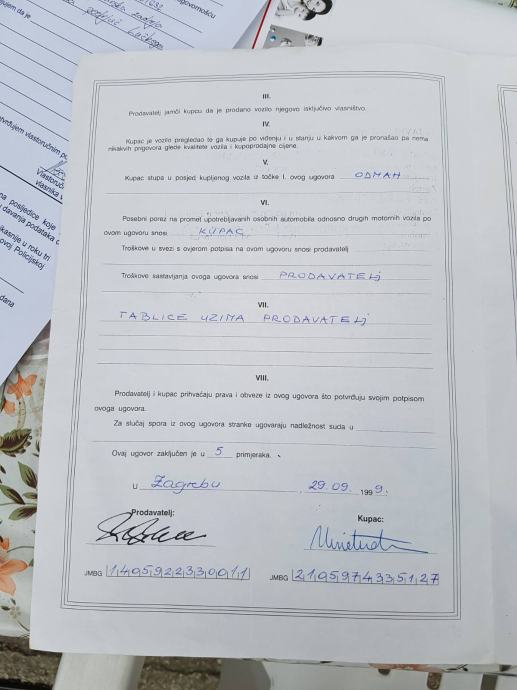 III.
Prodavatelj jamči kupcu da je prodano vozilo njegovo isključivo vlasništvo.
IV.
Kupac je vozilo pregledao te ga kupuje po viđenju i u stanju u kakvom ga je pronašao pa nema
nikakvih prigovora glede kvalitete vozila i kupoprodajne cijene.
V.
Kupac stupa u posjed kupljenog vozila iz točke I. ovog ugovora ODMAH
VI.
Posebni porez na promet upotrebljavanih osobnih automobila odnosno drugih motornih vozila po
ovom ugovoru snosi KUPAC
Troškove u svezi s ovjerom potpisa na ovom ugovoru snosi prodavatelj
Troškove sastavljanja ovoga ugovora snosi PRODAVATELJ
VII.
TABLICE UZIMA PRODAVATELJ
VIII.
Prodavatelj i kupac prihvaćaju prava i obveze iz ovog ugovora što potvrđuju svojim potpisom
ovoga ugovora.
Za slučaj spora iz ovog ugovora stranke ugovaraju nadležnost suda u
Ovaj ugovor zaključen je u 5 primjeraka.
U Zagrebu, 29.09. 1999.
Prodavatelj: Kupac:
JMBG 1405922330011 JMBG 2105974335127